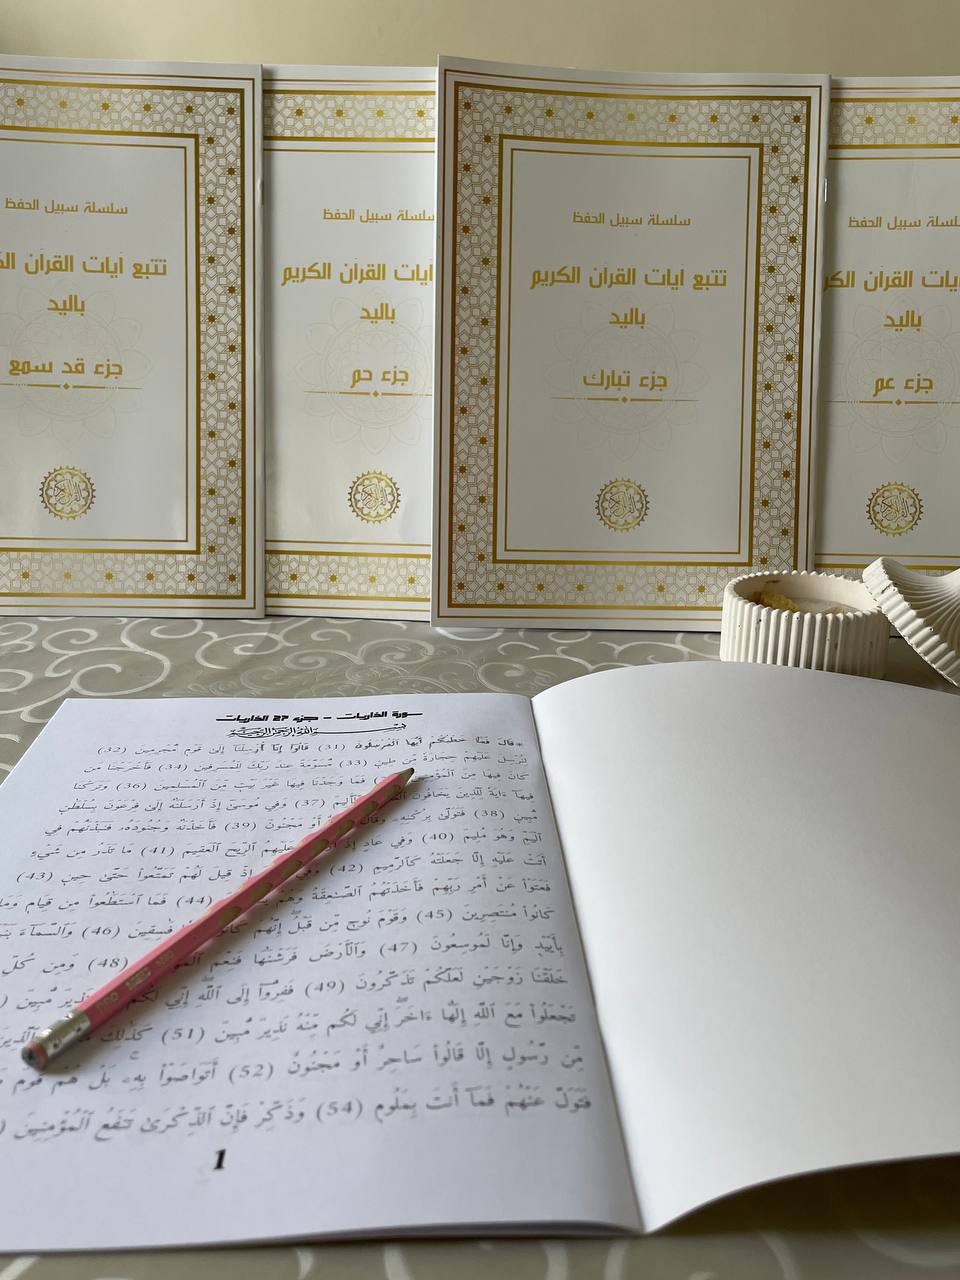 سلسلة سبيل الحفظ
تتبع آيات القرآن الكريم
باليد
جزء عم
سلسلة سبيل الحفظ
تتبع آيات القرآن الكريم
باليد
جزء تبارك
سلسلة سبيل الحفظ
آيات القرآن الكريم
باليد
جزء حم
سلسلة سبيل الحفظ
تتبع آيات القرآن
باليد
جزء قد سمع
سورة الذاريات - جزء 27 الذاريات
بسم الله الرحمن الرحيم
۞قَالَ فَمَا خَطْبُكُمْ أَيُّهَا ٱلْمُرْسَلُونَ (31) قَالُوٓا۟ إِنَّآ أُرْسِلْنَآ إِلَىٰ قَوْمٍ مُّجْرِمِينَ (32)
لِنُرْسِلَ عَلَيْهِمْ حِجَارَةً مِّن طِينٍ (33) مُّسَوَّمَةً عِندَ رَبِّكَ لِلْمُسْرِفِينَ (34) فَأَخْرَجْنَا مَن
كَانَ فِيهَا مِنَ ٱلْمُؤْمِنِينَ فَمَا وَجَدْنَا فِيهَا غَيْرَ بَيْتٍ مِّنَ ٱلْمُسْلِمِينَ (36) وَتَرَكْنَا
فِيهَآ ءَايَةً لِّلَّذِينَ يَخَافُونَ ٱلْأَلِيمَ (37) وَفِى مُوسَىٰٓ إِذْ أَرْسَلْنَٰهُ إِلَىٰ فِرْعَوْنَ بِسُلْطَٰنٍ
مُّبِينٍ (38) فَتَوَلَّىٰ بِرُكْنِهِۦ وَقَالَ أَوْ مَجْنُونٌ (39) فَأَخَذْنَٰهُ وَجُنُودَهُۥ فَنَبَذْنَٰهُمْ فِى
ٱلْيَمِّ وَهُوَ مُلِيمٌ (40) وَفِى عَادٍ إِذْ عَلَيْهِمُ ٱلرِّيحَ ٱلْعَقِيمَ (41) مَا تَذَرُ مِن شَىْءٍ
أَتَتْ عَلَيْهِ إِلَّا جَعَلَتْهُ كَٱلرَّمِيمِ (42) وَفِى إِذْ قِيلَ لَهُمْ تَمَتَّعُوا۟ حَتَّىٰ حِينٍ (43)
فَعَتَوْا۟ عَنْ أَمْرِ رَبِّهِمْ فَأَخَذَتْهُمُ ٱلصَّٰعِقَةُ وَهُمْ (44) فَمَا ٱسْتَطَٰعُوا۟ مِن قِيَامٍ وَمَا
كَانُوا۟ مُنتَصِرِينَ (45) وَقَوْمَ نُوحٍ مِّن قَبْلُ إِنَّهُمْ كَانُوا۟ فَٰسِقِينَ (46) وَٱلسَّمَآءَ
بِأَيْي۟دٍ وَإِنَّا لَمُوسِعُونَ (47) وَٱلْأَرْضَ فَرَشْنَٰهَا فَنِعْمَ (48) وَمِن كُلِّ
خَلَقْنَا زَوْجَيْنِ لَعَلَّكُمْ تَذَكَّرُونَ (49) فَفِرُّوٓا۟ إِلَى ٱللَّهِ إِنِّى لَكُم نَذِيرٌ مُّبِينٌ
تَجْعَلُوا۟ مَعَ ٱللَّهِ إِلَٰهًا ءَاخَرَ إِنِّى لَكُم مِّنْهُ نَذِيرٌ مُّبِينٌ (51) كَذَٰلِكَ ٱلَّذِينَ
مِّن رَّسُولٍ إِلَّا قَالُوا۟ سَاحِرٌ أَوْ مَجْنُونٌ (52) أَتَوَاصَوْا۟ بِهِۦ بَلْ هُمْ قَوْمٌ
فَتَوَلَّ عَنْهُمْ فَمَآ أَنتَ بِمَلُومٍ (54) وَذَكِّرْ فَإِنَّ ٱلذِّكْرَىٰ تَنفَعُ ٱلْمُؤْمِنِينَ
1